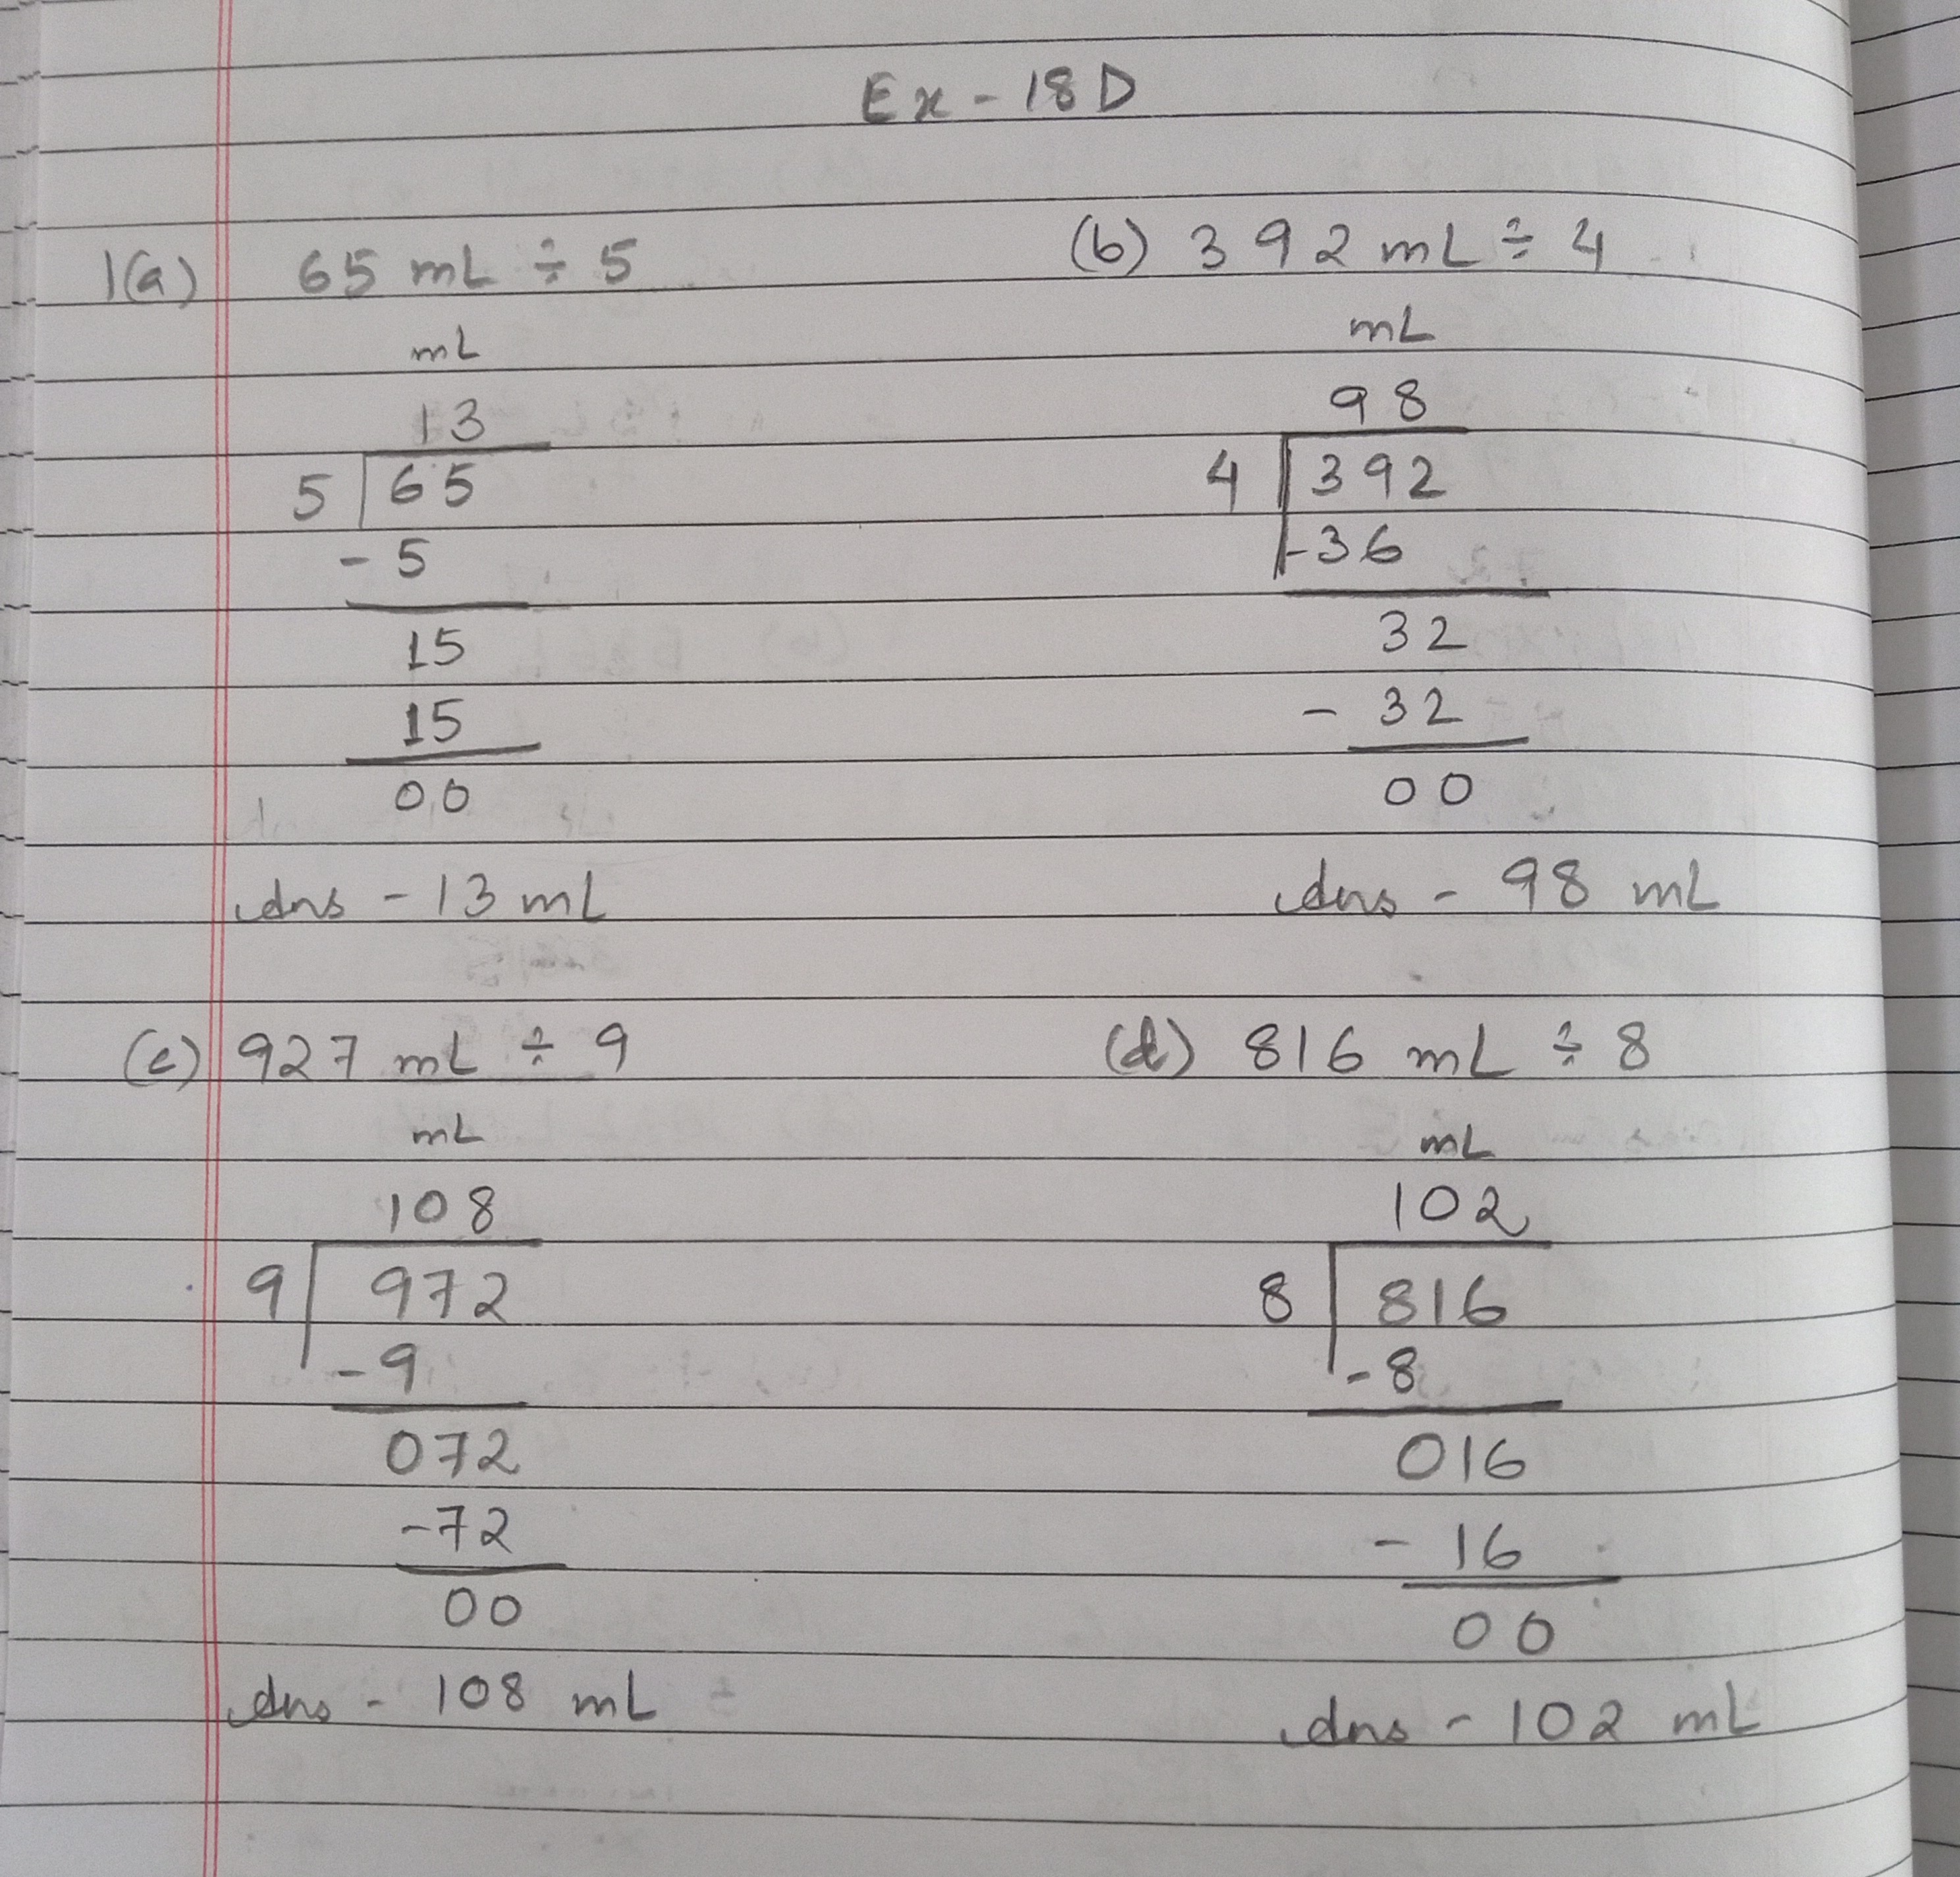 Ex - 18 D
1(a) 65 mL ÷ 5
mL
13
5 65
- 5
15
15
00
Ans - 13 mL
(b) 392 mL ÷ 4
mL
98
4 392
-36
32
- 32
00
Ans - 98 mL
(c) 927 mL ÷ 9
mL
108
9 972
-9
072
-72
00
Ans - 108 mL
(d) 816 mL ÷ 8
mL
102
8 816
-8
016
- 16
00
Ans - 102 mL